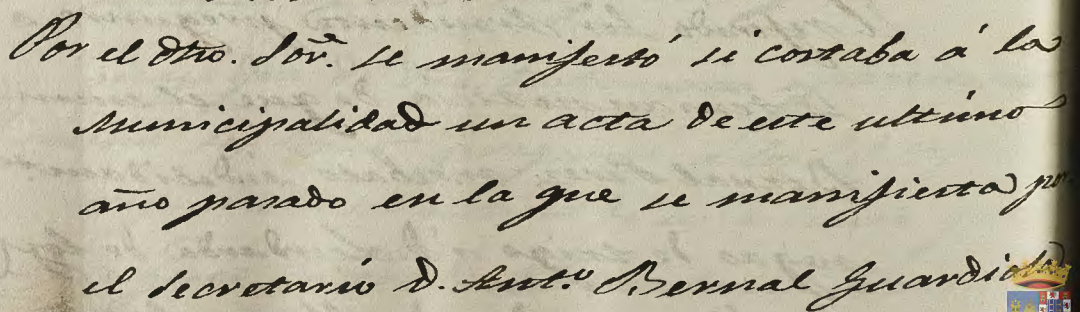 Por el dho. Sor. se manifestó si constaba á la
Municipalidad un acta de este ultimo
año pasado en la que se manifiesta por
el Secretario D. Anto. Bernal Guardiola